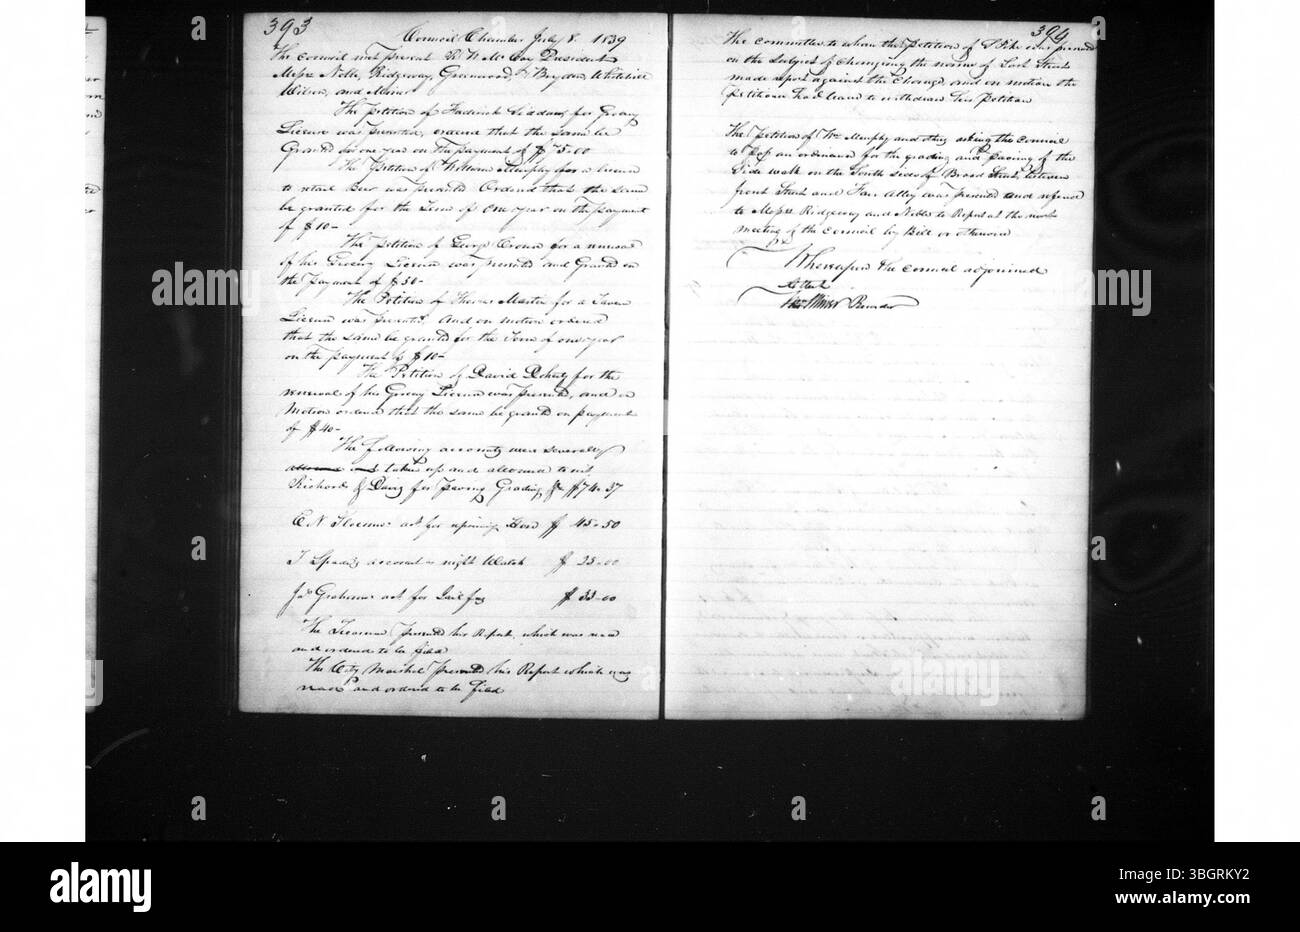 393
Council Chamber July 8. 1839
The council met present R W McCoy President
Messrs Noble, Ridgeway, Greenwood, Bryden, Whitehill
Wilson, and Miner
The Petition of for Grocery
License was presented, ordered that the same be
Granted for one year on the payment of $75-00
The Petition of William Murphy for a license
to retail Beer was presented Ordered that the same
be granted for the Term of one year on the payment
of $10-
The Petition of George Crown for a renewal
of his Grocery License was presented and Granted on
the payment of $50-
The Petition of Thomas Martin for a Tavern
License was presented, and on motion ordered
that the same be granted for the Term of one year
on the payment of $10-
The Petition of David Doherty for the
renewal of his Grocery License was presented, and on
Motion ordered that the same be granted on payment
of $40-
The following accounts were severally
taken up and allowed to wit
Richards & for Paving Grading &c $74-37
E N act for $45-50
T account as night Watch $25-00
Jas Graham act for $33-00
The Treasurer Presented his Report, which was read
and ordered to be filed
The City Marshal Presented his Report which was
read and ordered to be filed
394
The committee to whom the Petition of was presented
on the Subject of Changing the name of Street
made report against the Change and on motion the
Petitioner had leave to withdraw his Petition
The Petition of Wm Murphy and others asking the council
to Pass an ordinance for the grading and paving of the
Side walk on the South side of Broad Street, between
front Street and Fair Alley was presented and referred
to Messrs Ridgeway and Noble to Report at the next
meeting of the council by Bill or otherwise
Whereupon the council adjourned
Attest
Miner Recorder
alamy
Image ID: 3BGRKY2
www.alamy.com